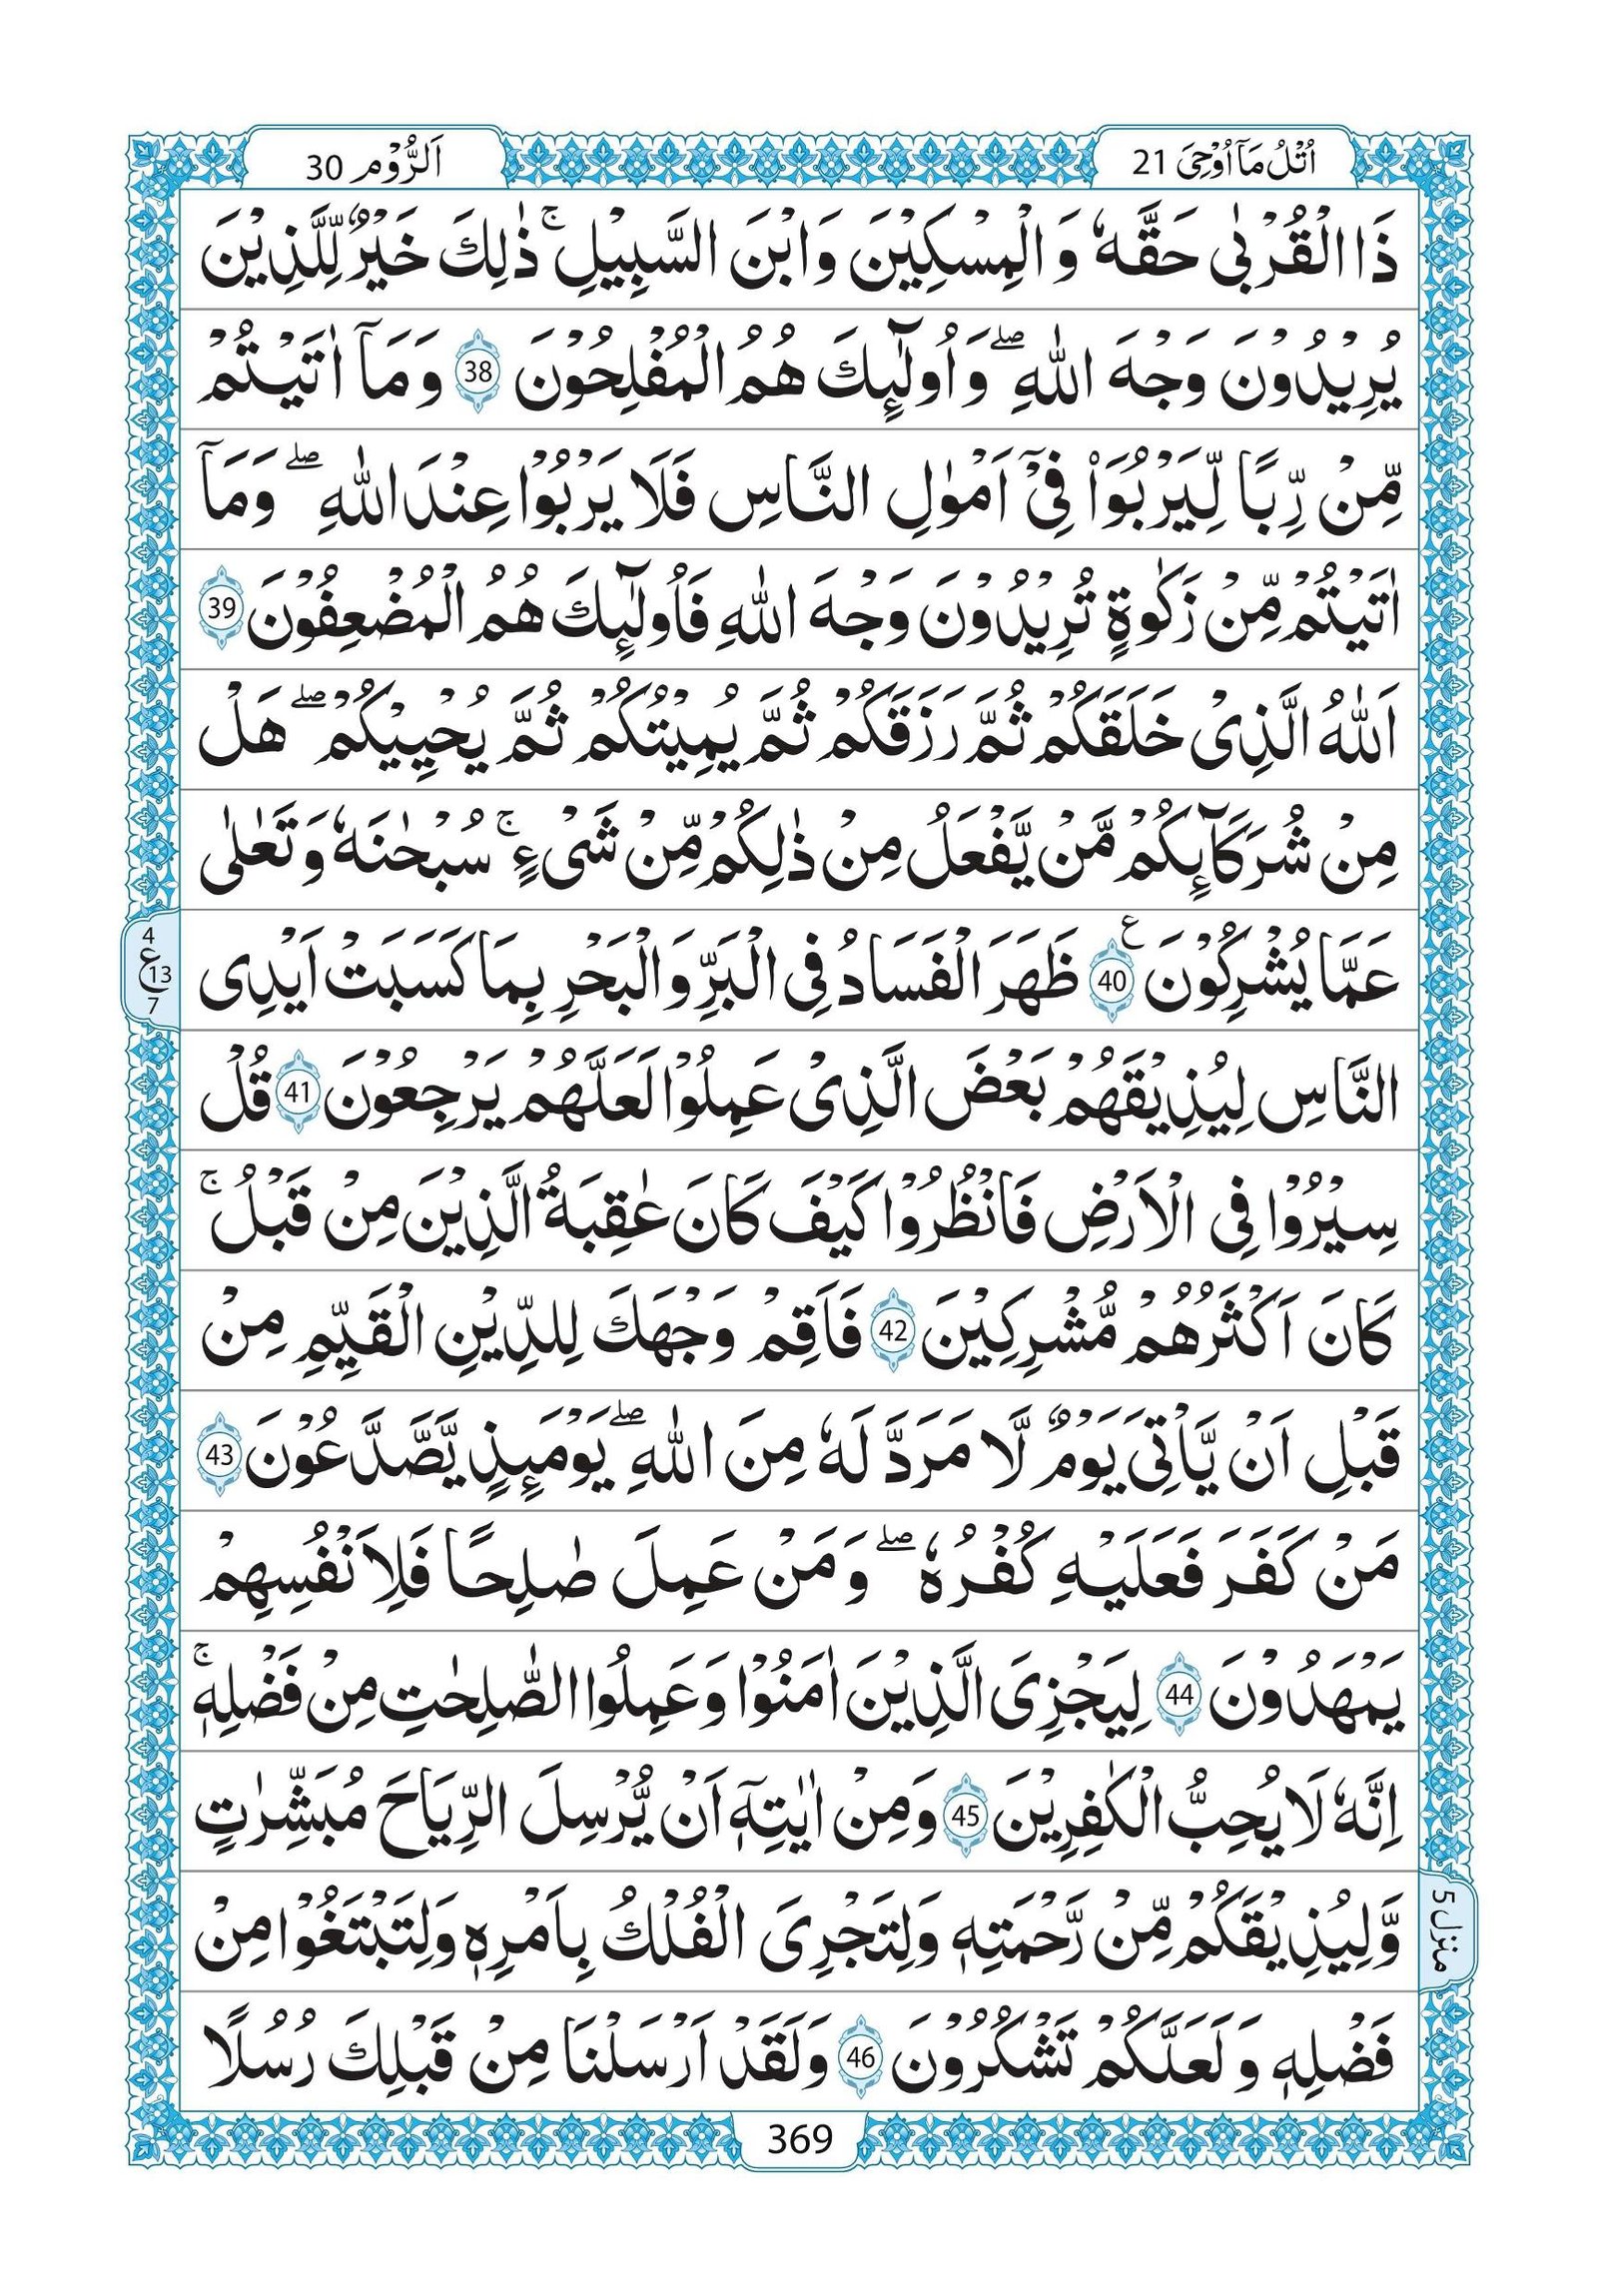 اُتْلُ مَآ اُوْحِيَ 21
اَلرُّوْم 30
ذَا الْقُرْبٰى حَقَّهٗ وَ الْمِسْكِيْنَ وَ ابْنَ السَّبِيْلِ ۚ ذٰلِكَ خَيْرٌ لِّلَّذِيْنَ
يُرِيْدُوْنَ وَجْهَ اللّٰهِ ۖ وَ اُولٰٓئِكَ هُمُ الْمُفْلِحُوْنَ 38 وَ مَآ اٰتَيْتُمْ
مِّنْ رِّبًا لِّيَرْبُوَا۠ فِيْٓ اَمْوٰلِ النَّاسِ فَلَا يَرْبُوْا عِنْدَ اللّٰهِ ۖ وَ مَآ
اٰتَيْتُمْ مِّنْ زَكٰوةٍ تُرِيْدُوْنَ وَجْهَ اللّٰهِ فَاُولٰٓئِكَ هُمُ الْمُضْعِفُوْنَ 39
اَللّٰهُ الَّذِيْ خَلَقَكُمْ ثُمَّ رَزَقَكُمْ ثُمَّ يُمِيْتُكُمْ ثُمَّ يُحْيِيْكُمْ ۖ هَلْ
مِنْ شُرَكَآئِكُمْ مَّنْ يَّفْعَلُ مِنْ ذٰلِكُمْ مِّنْ شَيْءٍ ۚ سُبْحٰنَهٗ وَ تَعٰلٰى
عَمَّا يُشْرِكُوْنَ 40 ع ظَهَرَ الْفَسَادُ فِي الْبَرِّ وَ الْبَحْرِ بِمَا كَسَبَتْ اَيْدِي
النَّاسِ لِيُذِيْقَهُمْ بَعْضَ الَّذِيْ عَمِلُوْا لَعَلَّهُمْ يَرْجِعُوْنَ 41 قُلْ
سِيْرُوْا فِي الْاَرْضِ فَانْظُرُوْا كَيْفَ كَانَ عٰقِبَةُ الَّذِيْنَ مِنْ قَبْلُ ۚ
كَانَ اَكْثَرُهُمْ مُّشْرِكِيْنَ 42 فَاَقِمْ وَجْهَكَ لِلدِّيْنِ الْقَيِّمِ مِنْ
قَبْلِ اَنْ يَّاْتِيَ يَوْمٌ لَّا مَرَدَّ لَهٗ مِنَ اللّٰهِ ۖ يَوْمَئِذٍ يَّصَّدَّعُوْنَ 43
مَنْ كَفَرَ فَعَلَيْهِ كُفْرُهٗ ۖ وَ مَنْ عَمِلَ صٰلِحًا فَلِاَنْفُسِهِمْ
يَمْهَدُوْنَ 44 لِيَجْزِيَ الَّذِيْنَ اٰمَنُوْا وَ عَمِلُوا الصّٰلِحٰتِ مِنْ فَضْلِهٖ ۚ
اِنَّهٗ لَا يُحِبُّ الْكٰفِرِيْنَ 45 وَ مِنْ اٰيٰتِهٖٓ اَنْ يُّرْسِلَ الرِّيَاحَ مُبَشِّرٰتٍ
وَّ لِيُذِيْقَكُمْ مِّنْ رَّحْمَتِهٖ وَ لِتَجْرِيَ الْفُلْكُ بِاَمْرِهٖ وَ لِتَبْتَغُوْا مِنْ
فَضْلِهٖ وَ لَعَلَّكُمْ تَشْكُرُوْنَ 46 وَ لَقَدْ اَرْسَلْنَا مِنْ قَبْلِكَ رُسُلًا
4
ع 13
7
منزل 5
369